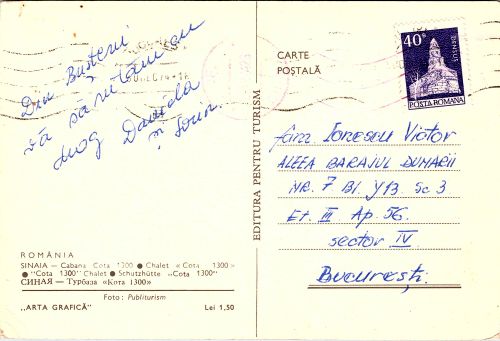 Din Bușteni
vă sărutăm cu
drag Daniela
și
CARTE
POȘTALĂ
40B
DENSUȘ
POSTA ROMANA
EDITURA PENTRU TURISM
fam Ionescu Victor
ALEEA BARAJUL DUNARII
NR. 7 Bl. Y13 Sc 3
Et. III Ap. 56.
sector IV
București.
ROMÂNIA
SINAIA — Cabana Cota 1300 ● Chalet « Cota 1300»
● "Cota 1300" Chalet ● Schutzhütte „Cota 1300"
СИНАЯ — Турбаза «Кота 1300»
Foto : Publiturism
„ARTA GRAFICĂ" Lei 1,50